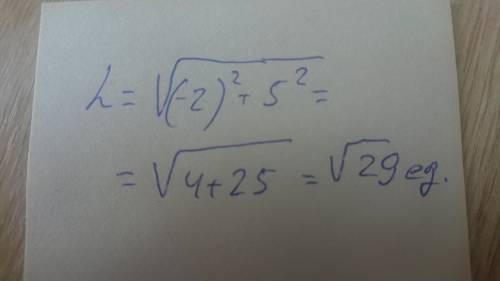 L = √((-2)² + 5²) =
= √(4+25) = √29 ед.